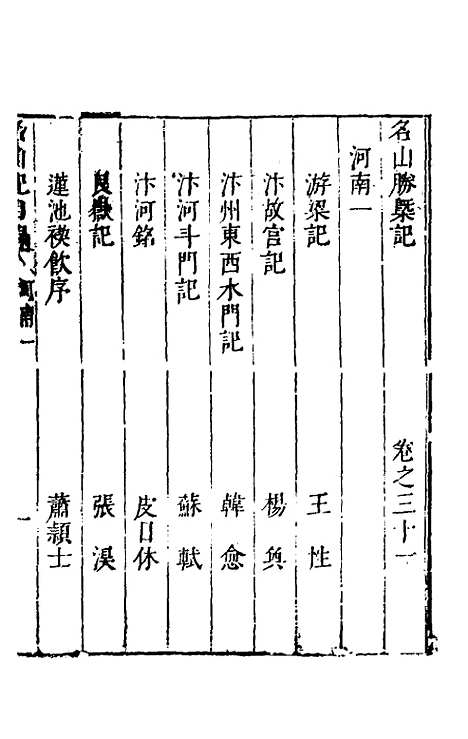 名山勝槩記 卷之三十一
河南一
游梁記 王性
汴故宮記 楊奐
汴州東西水門記 韓愈
汴河斗門記 蘇軾
汴河銘 皮日休
艮嶽記 張淏
蓮池禊飲序 蕭穎士
河南一 一